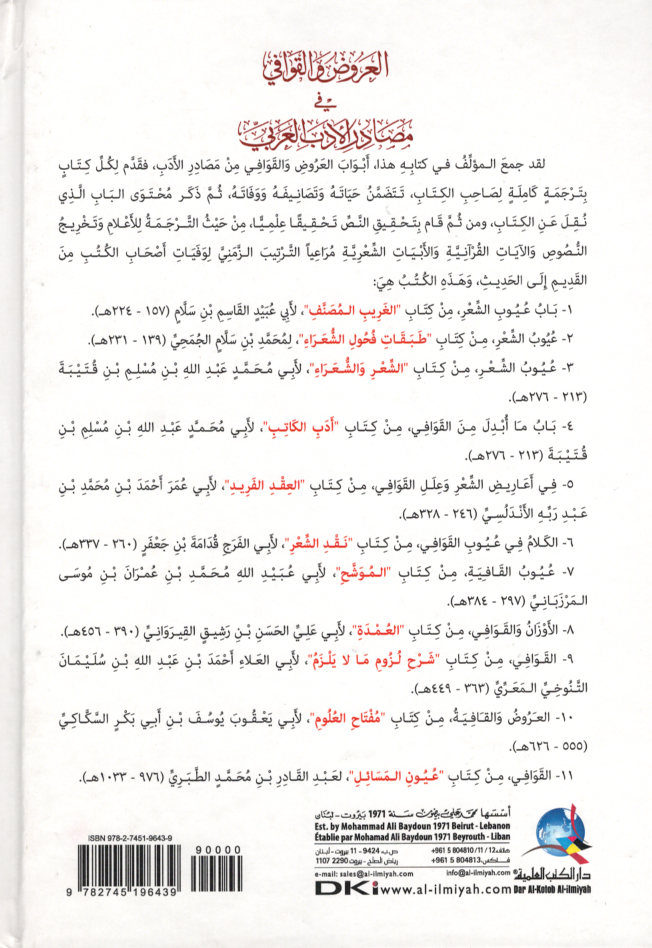 العروض والقوافي
في
مصادر الأدب العربي
لقد جمعَ المؤلِّفُ في كتابِهِ هذا، أَبْوابَ العَرُوضِ وَالقَوافي مِنْ مَصَادِرِ الأَدَبِ، فقَدَّم لِكُلِّ كِتابٍ
بِتَرْجَمَةٍ كَامِلَةٍ لِصَاحِبِ الكِتابِ، تَتَضَمَّنُ حَيَاتَهُ وَتَصَانِيفَهُ وَوَفَاتَهُ، ثُمَّ ذَكَرَ مُحْتَوَى البَابِ الَّذِي
نُقِلَ عَنِ الكِتَابِ، ومن ثُمَّ قَام بِتَحْقِيقِ النَّصِّ تَحْقِيقًا عِلْمِيًّا، مِنْ حَيْثُ التَّرْجَمَةُ لِلأَعْلامِ وَتَخْرِيجُ
النُّصُوصِ وَالآيَاتِ القُرْآنِيَّةِ وَالأَبْيَاتِ الشِّعْرِيَّةِ مُرَاعِياً التَّرْتِيبَ الزَّمَنِيَّ لِوَفَيَاتِ أَصْحَابِ الكُتُبِ مِنَ
القَدِيمِ إِلَى الحَدِيثِ، وَهَذِهِ الكُتُبُ هِيَ:
١- بَابُ عُيُوبِ الشِّعْرِ، مِنْ كِتَابِ "الغَرِيبِ المُصَنَّفِ"، لأَبِي عُبَيْدٍ القَاسِمِ بْنِ سَلَّامٍ (١٥٧ - ٢٢٤هـ).
٢- عُيُوبُ الشِّعْرِ، مِنْ كِتَابِ "طَبَقَاتِ فُحُولِ الشُّعَرَاءِ"، لِمُحَمَّدِ بْنِ سَلَّامٍ الجُمَحِيِّ (١٣٩ - ٢٣١هـ).
٣- عُيُوبُ الشِّعْرِ، مِنْ كِتَابِ "الشِّعْرِ وَالشُّعَرَاءِ"، لأَبِي مُحَمَّدٍ عَبْدِ اللهِ بْنِ مُسْلِمِ بْنِ قُتَيْبَةَ
(٢١٣ - ٢٧٦هـ).
٤- بَابُ مَا أُبْدِلَ مِنَ القَوَافِي، مِنْ كِتَابِ "أَدَبِ الكَاتِبِ"، لأَبِي مُحَمَّدٍ عَبْدِ اللهِ بْنِ مُسْلِمِ بْنِ
قُتَيْبَةَ (٢١٣ - ٢٧٦هـ).
٥- فِي أَعَارِيضِ الشِّعْرِ وَعِلَلِ القَوَافِي، مِنْ كِتَابِ "العِقْدِ الفَرِيدِ"، لأَبِي عُمَرَ أَحْمَدَ بْنِ مُحَمَّدِ بْنِ
عَبْدِ رَبِّهِ الأَنْدَلُسِيِّ (٢٤٦ - ٣٢٨هـ).
٦- الكَلامُ فِي عُيُوبِ القَوَافِي، مِنْ كِتَابِ "نَقْدِ الشِّعْرِ"، لأَبِي الفَرَجِ قُدَامَةَ بْنِ جَعْفَرٍ (٢٦٠ - ٣٣٧هـ).
٧- عُيُوبُ القَافِيَةِ، مِنْ كِتَابِ "المُوَشَّحِ"، لأَبِي عُبَيْدِ اللهِ مُحَمَّدِ بْنِ عُمْرَانَ بْنِ مُوسَى
المَرْزَبَانِيِّ (٢٩٧ - ٣٨٤هـ).
٨- الأَوْزَانُ وَالقَوَافِي، مِنْ كِتَابِ "العُمْدَةِ"، لأَبِي عَلِيٍّ الحَسَنِ بْنِ رَشِيقٍ القِيرَوَانِيِّ (٣٩٠ - ٤٥٦هـ).
٩- القَوَافِي، مِنْ كِتَابِ "شَرْحِ لُزُومِ مَا لا يَلْزَمُ"، لأَبِي العَلاءِ أَحْمَدَ بْنِ عَبْدِ اللهِ بْنِ سُلَيْمَانَ
التَّنُوخِيِّ المَعَرِّيِّ (٣٦٣ - ٤٤٩هـ).
١٠- العَرُوضُ وَالقَافِيَةُ، مِنْ كِتَابِ "مُفْتَاحِ العُلُومِ"، لأَبِي يَعْقُوبَ يُوسُفَ بْنِ أَبِي بَكْرٍ السَّكَّاكِيِّ
(٥٥٥ - ٦٢٦هـ).
١١- القَوَافِي، مِنْ كِتَابِ "عُيُونِ المَسَائِلِ"، لعَبْدِ القَادِرِ بْنِ مُحَمَّدٍ الطَّبَرِيِّ (٩٧٦ - ١٠٣٣هـ).
أسسها محمد علي بيضون سنة 1971 بيروت - لبنان
Est. by Mohammad Ali Baydoun 1971 Beirut - Lebanon
Établie par Mohamad Ali Baydoun 1971 Beyrouth - Liban
ص.ب 9424 - 11 بيروت - لبنان هاتف +961 5 804810/ 11/ 12
رياض الصلح - بيروت 2290 1107 فاكس +961 5 804813
e-mail: sales@al-ilmiyah.com info@al-ilmiyah.com
DKi www.al-ilmiyah.com
دار الكتب العلمية
Dar Al-Kotob Al-ilmiyah
ISBN 978-2-7451-9643-9
90000
9 782745 196439